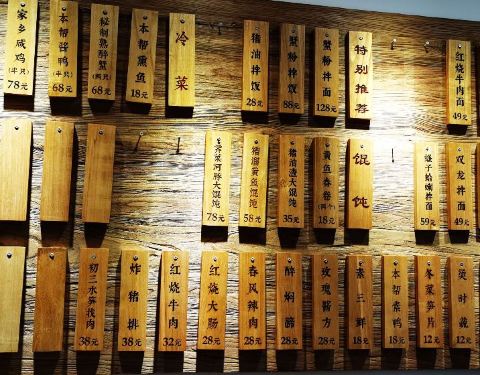 家乡咸鸡(半只)
78元
本帮酱鸭(半只)
68元
秘制熟醉蟹(两只)
68元
本帮熏鱼
18元
冷菜
猪油拌饭
28元
蟹粉拌饭
88元
蟹粉拌面
128元
特别推荐
红烧牛肉面
49元
荠菜河豚大馄饨
78元
58元
猪油渣大馄饨
35元
黄鱼春卷(两个)
18元
馄饨
蛤蜊拌面
59元
双龙拌面
49元
水笋筏肉
38元
炸猪排
38元
红烧牛肉
32元
红烧大肠
28元
春风辣肉
28元
醉焖蹄
28元
玫瑰酱方
28元
素三鲜
18元
本帮素鸭
18元
冬菜笋片
12元
时蔬
12元